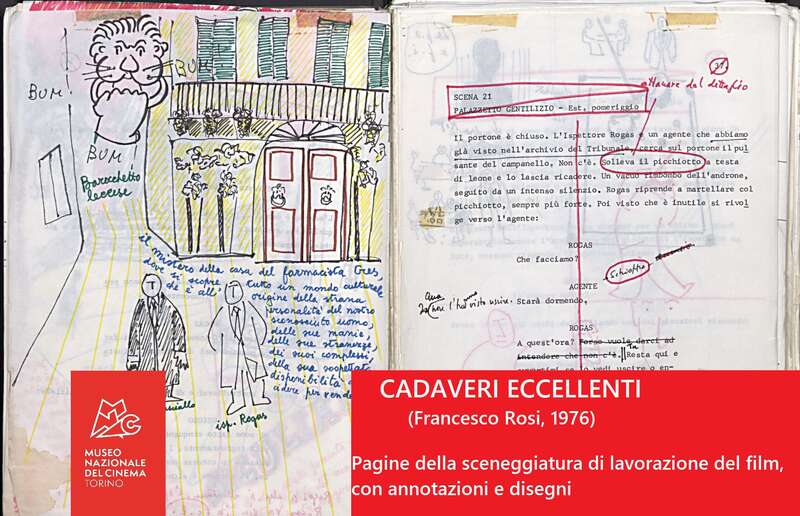 BUM.
BUM.
BUM
Barocchetto
leccese
il mistero della casa del farmacista Cres,
dove si scopre tutto un mondo culturale
che è all' origine della strana
personalità del nostro
sconosciuto uomo,
delle sue manie,
delle sue stranezze,
dei suoi complessi,
della sua sospettata
disponibilità a
cidere per vende
isp. Rogas
37.
attaccare dal dettaglio
SCENA 21
PALAZZETTO GENTILIZIO - Est. pomeriggio
Il portone è chiuso. L'Ispettore Rogas e un agente che abbiamo
già visto nell'archivio del Tribunale, cerca sul portone il pul
sante del campanello. Non c'è. Solleva il picchiotto a testa
di leone e lo lascia ricadere. Un vacuo rimbombo dell'androne,
seguito da un intenso silenzio. Rogas riprende a martellare col
picchiotto, sempre più forte. Poi visto che è inutile si rivol
ge verso l'agente:
ROGAS
Che facciamo?
AGENTE
l'ha visto uscire. Starà dormendo,
ROGAS
A quest'ora? Forse vuole darci ad
intendere che non c'è. Resta qui e
CADAVERI ECCELLENTI
(Francesco Rosi, 1976)
Pagine della sceneggiatura di lavorazione del film,
con annotazioni e disegni
MUSEO
NAZIONALE
DEL CINEMA
TORINO